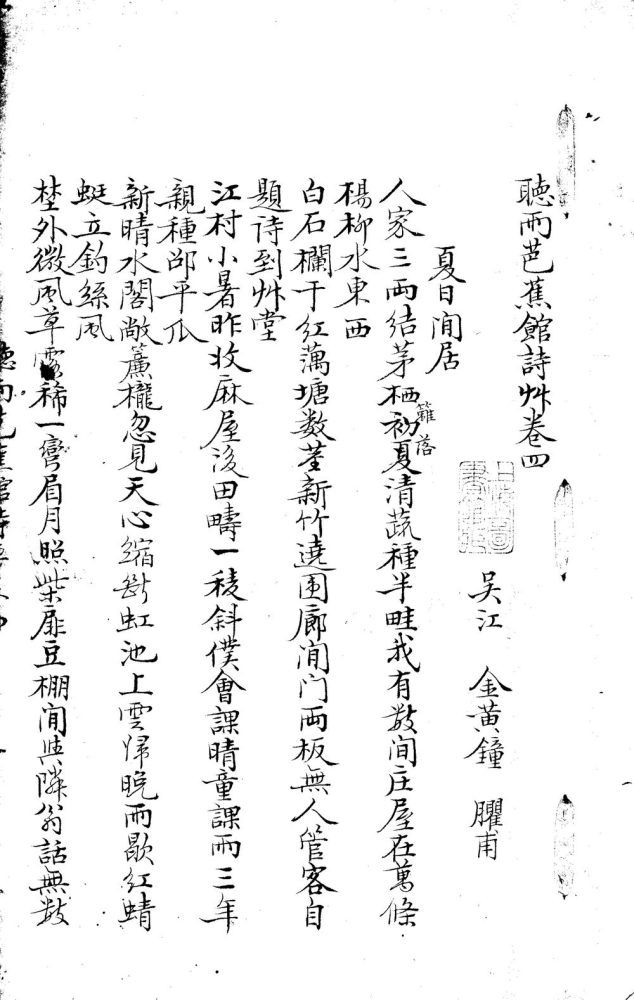 聴雨芭蕉館詩艸卷四
吳江 金黃鐘 臞甫
夏日閒居
人家三兩結茅栖初夏清蔬種半畦我有數間庄屋在萬條
籬落
楊柳水東西
白石欄干紅藕塘数莖新竹遶围廊閒门两板無人管客自
題诗到艸堂
江村小暑昨收麻屋後田疇一稜斜僕會課晴童課雨三年
親種邵平瓜
新晴水閣敞簾櫳忽見天心縮斷虹池上雲归晚雨歇红蜻
蜓立釣絲风
埜外微风草露稀一彎眉月照柴扉豆棚閒與隣翁話無数